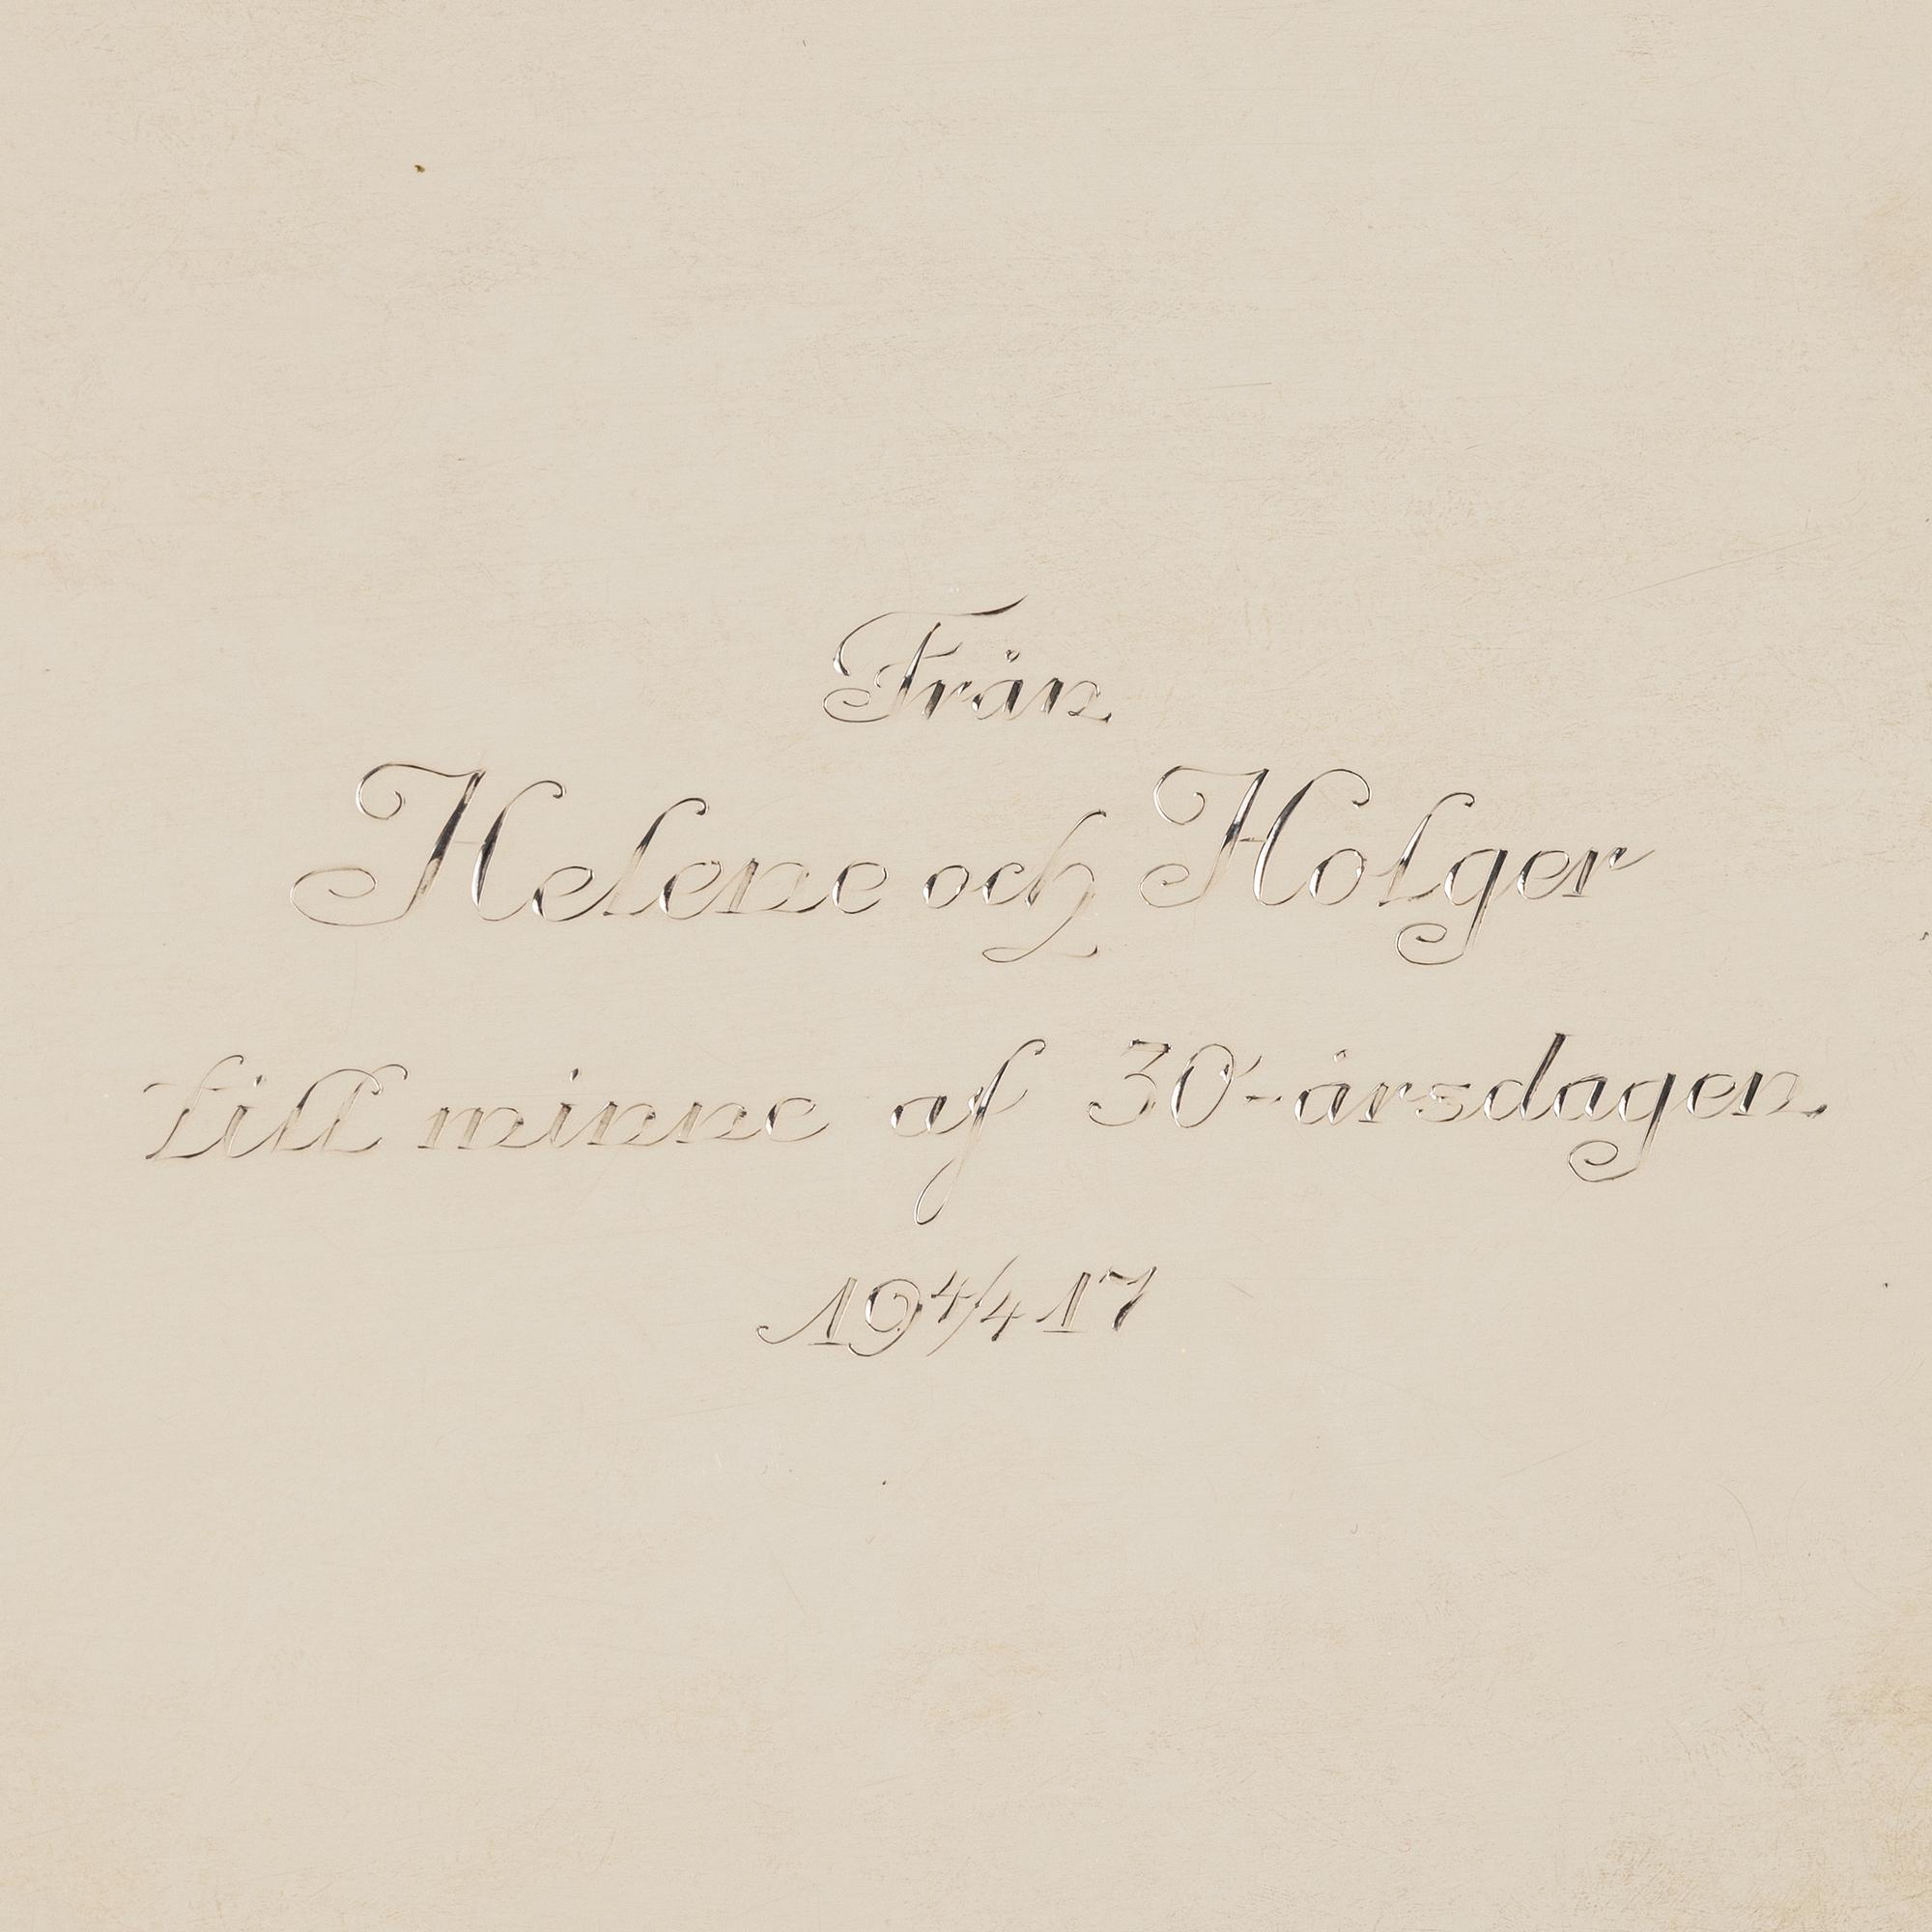 Från
Helene och Holger
till minne af 30-årsdagen
19 4/4 17